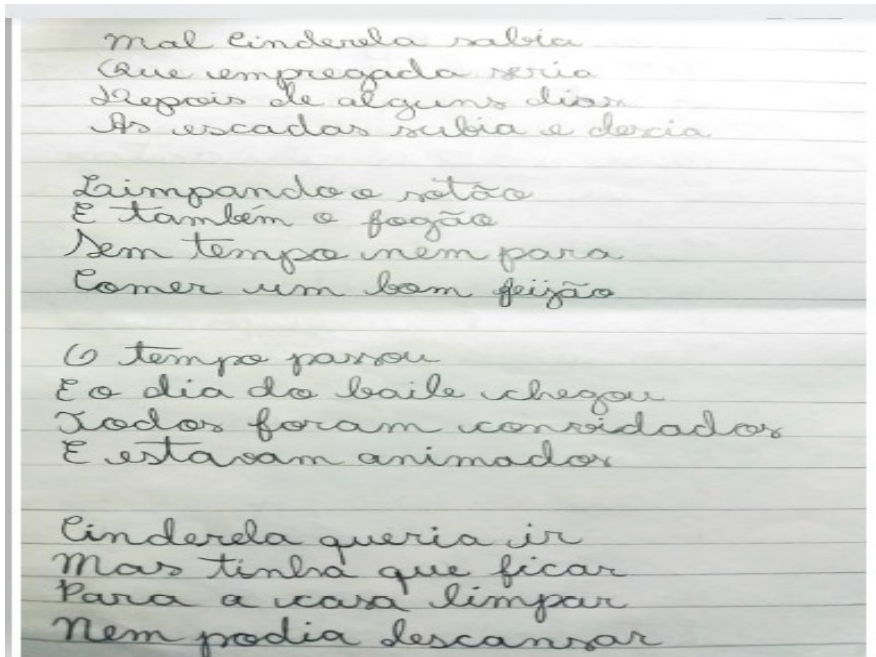 Mal Cinderela sabia
Que empregada seria
Depois de alguns dias
As escadas subia e descia
Limpando o sotão
E também o fogão
Sem tempo nem para
Comer um bom feijão
O tempo passou
E o dia do baile chegou
Todos foram convidados
E estavam animados
Cinderela queria ir
Mas tinha que ficar
Para a casa limpar
Nem podia descansar